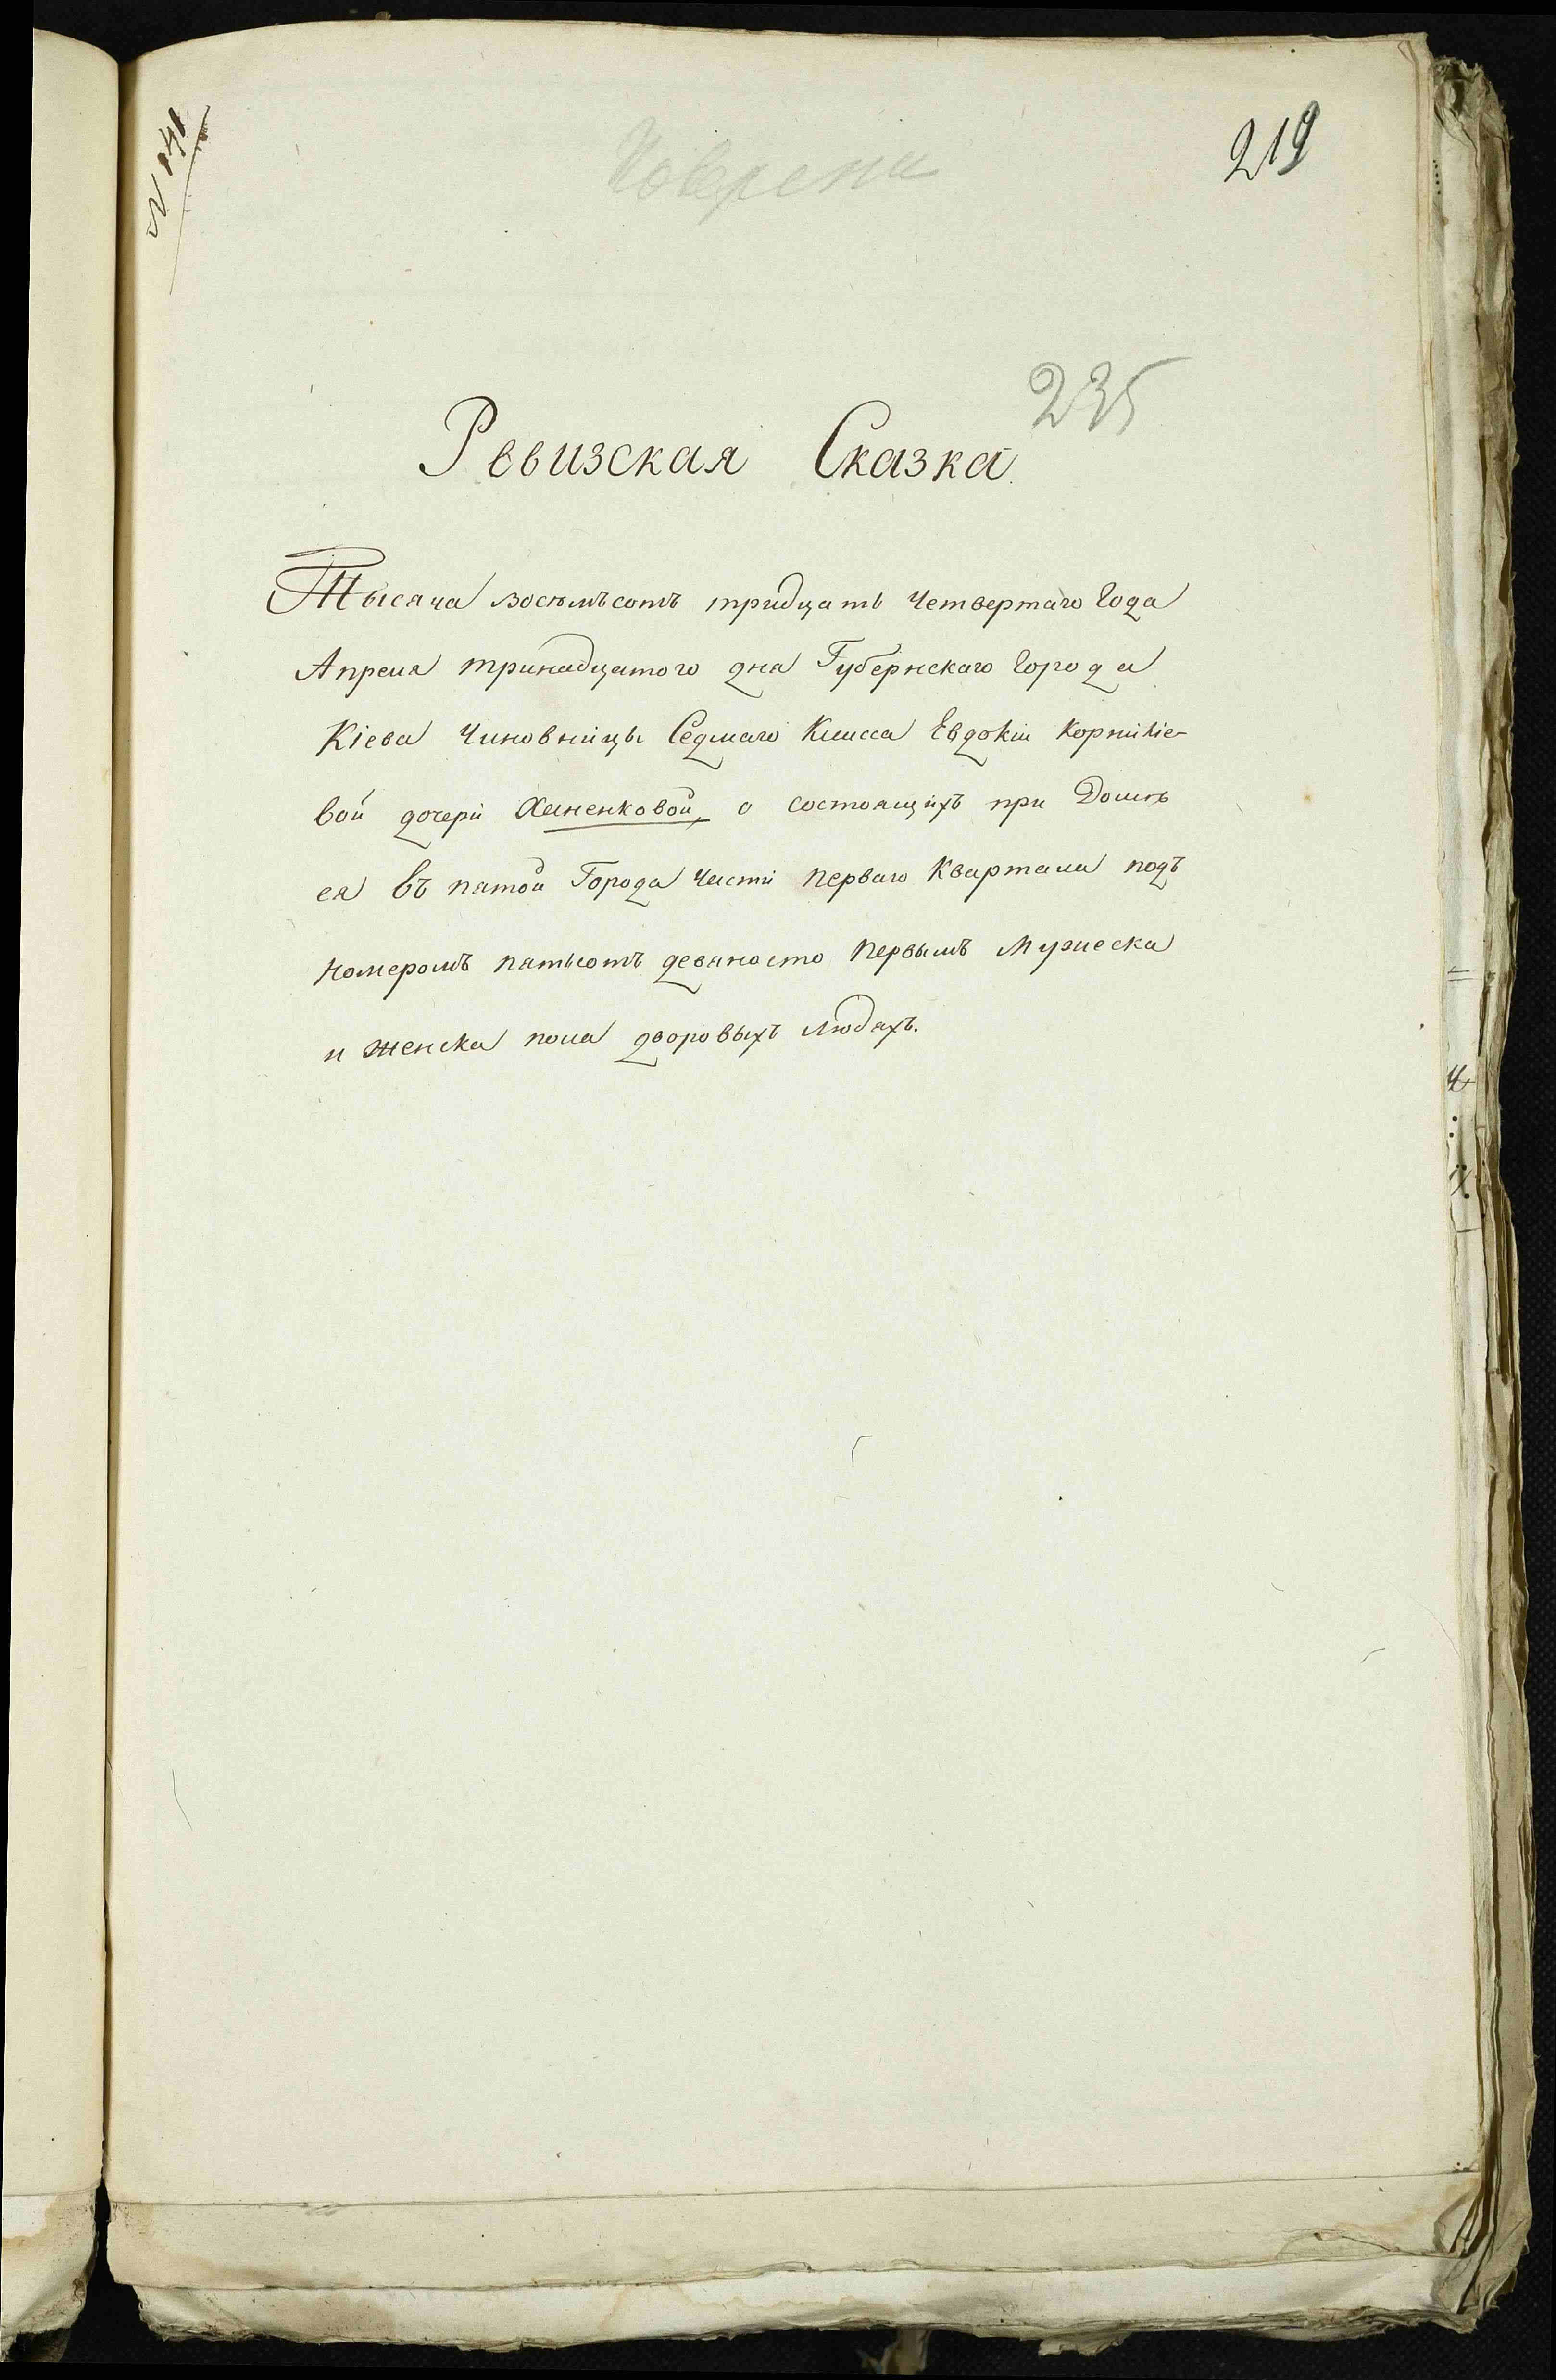 № 141
Поверена
219
235
Ревизская Сказка.
Тысяча восемьсотъ тридцать четвертаго Года
Апреля тринадцатого дня Губернскаго Города
Кіева Чиновницы Седмаго Класса Евдокіи Корниліе-
вой дочери Ханенковой, о состоящихъ при Доме
ея въ пятой Города Части перваго Квартала подъ
номеромъ пятьсотъ девяносто первымъ Мужеска
и женска пола дворовыхъ людяхъ.